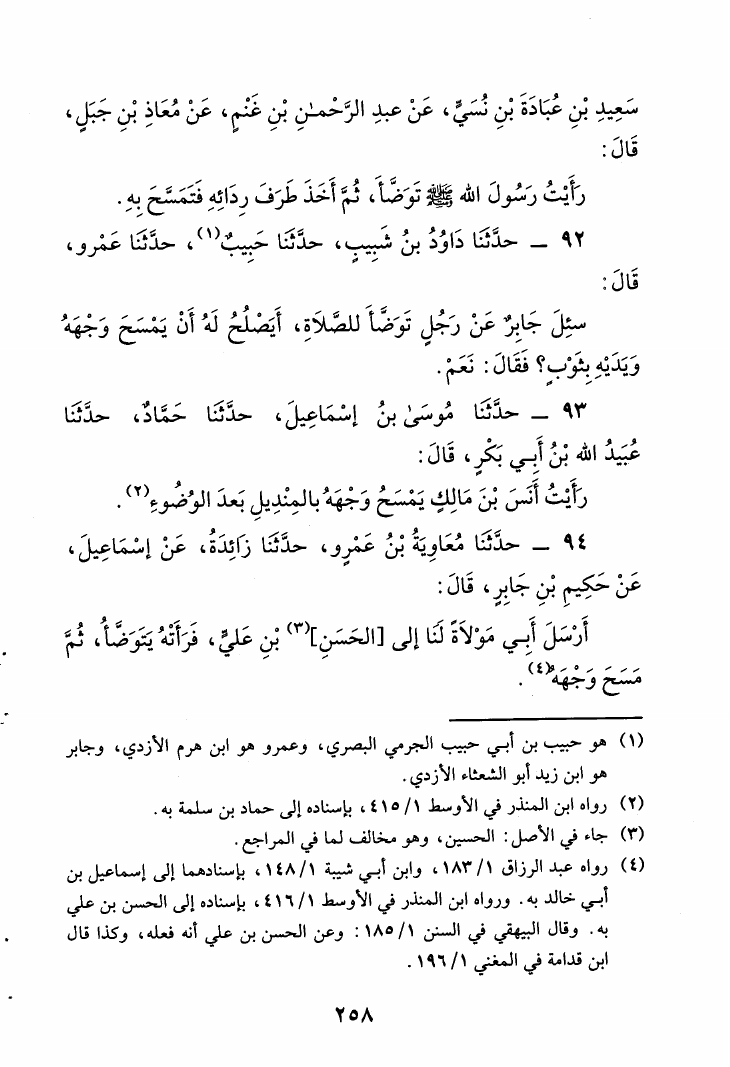 سَعِيدِ بْنِ عُبَادَةَ بْنِ نُسَيٍّ، عَنْ عبدِ الرَّحْمـٰنِ بْنِ غَنْمٍ، عَنْ مُعَاذِ بْنِ جَبَلٍ،
قَالَ:
رَأَيْتُ رَسُولَ الله ﷺ تَوَضَّأَ، ثُمَّ أَخَذَ طَرَفَ رِدَائِهِ فَتَمَسَّحَ بِهِ.
٩٢ ـ حدَّثَنَا دَاوُدُ بنُ شَبِيبٍ، حدَّثَنَا حَبِيبٌ(١)، حدَّثَنَا عَمْرو،
قَالَ:
سئِلَ جَابِرٌ عَنْ رَجُلٍ تَوَضَّأَ للصَّلَاةِ، أَيَصْلُحُ لَهُ أَنْ يَمْسَحَ وَجْهَهُ
وَيَدَيْهِ بِثَوْبٍ؟ فَقَالَ: نَعَمْ.
٩٣ ـ حدَّثَنَا مُوسَىٰ بنُ إسْمَاعِيلَ، حدَّثَنَا حَمَّادٌ، حدَّثَنَا
عُبَيدُ الله بْنُ أَبِي بَكْرٍ، قَالَ:
رَأَيْتُ أَنَسَ بْنَ مَالِكٍ يَمْسَحُ وَجْهَهُ بالمِنْدِيلِ بَعدَ الوُضُوءِ(٢).
٩٤ ـ حدَّثَنَا مُعَاوِيَةُ بْنُ عَمْرٍو، حدَّثَنَا زَائِدَةُ، عَنْ إسْمَاعِيلَ،
عَنْ حَكِيمِ بْنِ جَابِرٍ، قَالَ:
أَرْسَلَ أَبِي مَوْلَاةً لَنَا إلى [الحَسَنِ](٣) بْنِ عَليٍّ، فَرَأَتْهُ يَتَوَضَّأُ، ثُمَّ
مَسَحَ وَجْهَهُ(٤).
(١) هو حبيب بن أبي حبيب الجرمي البصري، وعمرو هو ابن هرم الأزدي، وجابر
هو ابن زيد أبو الشعثاء الأزدي.
(٢) رواه ابن المنذر في الأوسط ٤١٥/١، بإسناده إلى حماد بن سلمة به.
(٣) جاء في الأصل: الحسين، وهو مخالف لما في المراجع.
(٤) رواه عبد الرزاق ١٨٣/١، وابن أبي شيبة ١٤٨/١، بإسنادهما إلى إسماعيل بن
أبي خالد به. ورواه ابن المنذر في الأوسط ٤١٦/١، بإسناده إلى الحسن بن علي
به. وقال البيهقي في السنن ١٨٥/١: وعن الحسن بن علي أنه فعله، وكذا قال
ابن قدامة في المغني ١٩٦/١.
٢٥٨